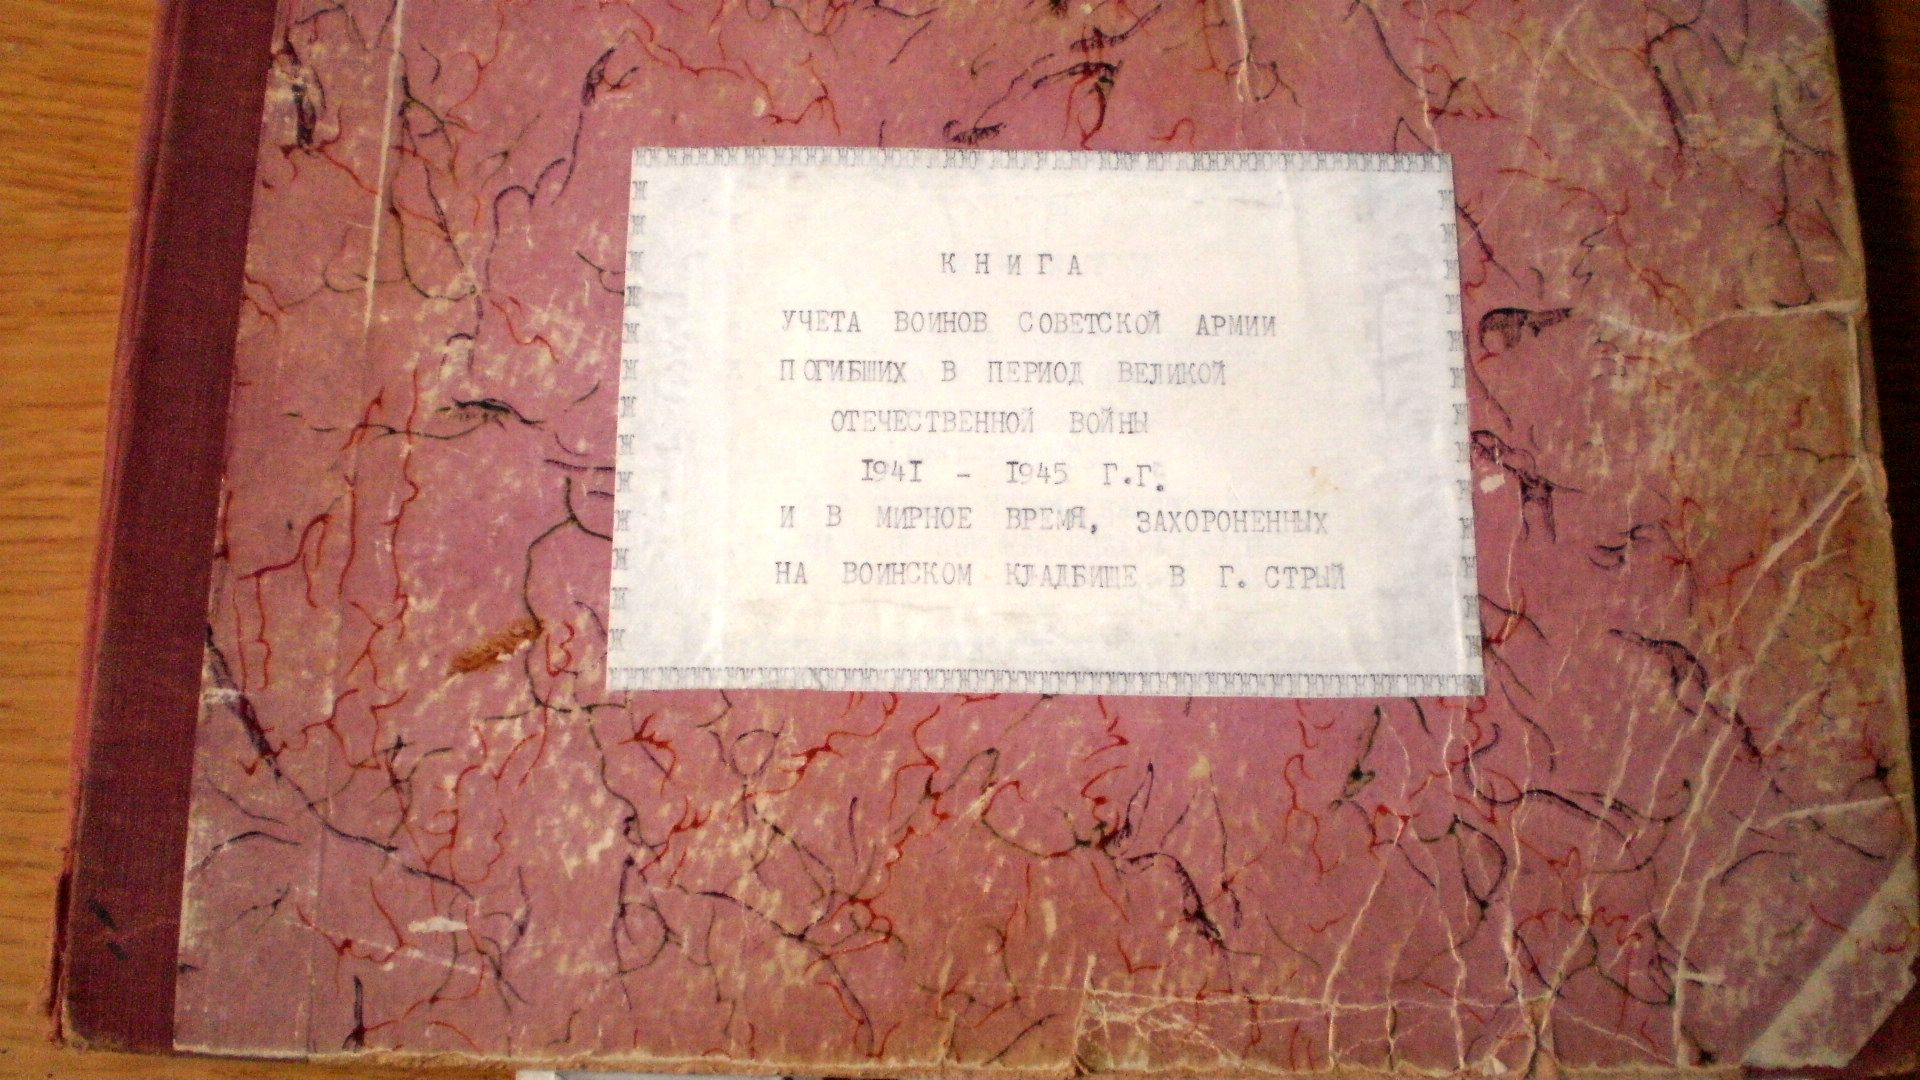 КНИГА
УЧЕТА ВОИНОВ СОВЕТСКОЙ АРМИИ
ПОГИБШИХ В ПЕРИОД ВЕЛИКОЙ
ОТЕЧЕСТВЕННОЙ ВОЙНЫ
1941 - 1945 Г.Г.
И В МИРНОЕ ВРЕМЯ, ЗАХОРОНЕННЫХ
НА ВОИНСКОМ КЛАДБИЩЕ В Г. СТРЫЙ